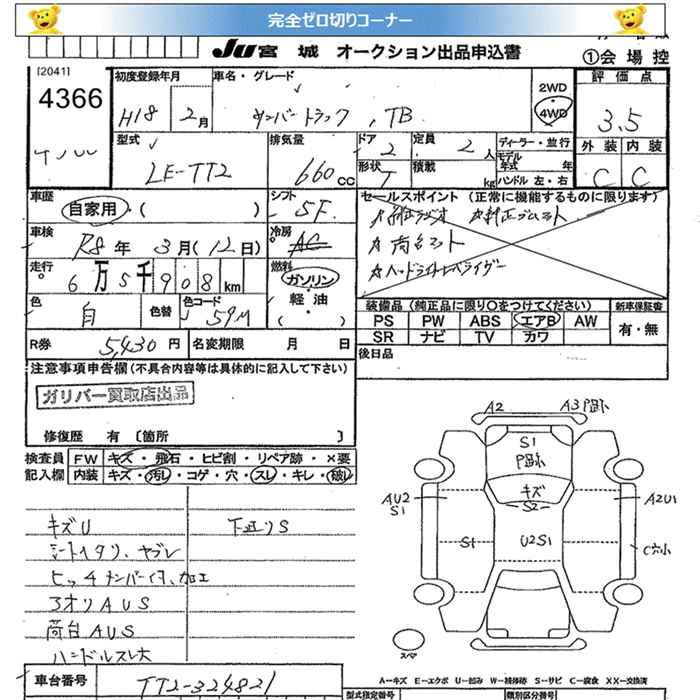 完全ゼロ切りコーナー
JU宮城 オークション出品申込書
①会場控
[2041]
4366
初度登録年月
H18 2月
車名・グレード
サンバートラック, TB
2WD
4WD
評価点
3.5
外装 内装
C C
型式
LE-TT2
排気量
660cc
ドア
2
定員
2人
形状
T
積載
kg
ディーラー・並行
モデル年式 年
ハンドル 左・右
車歴
自家用・( )
シフト
5F
車検
R8年3月(12日)
冷房
AC
走行
6万5千908km
燃料
ガソリン・軽油
( ・ )
色
白
色替
色コード
59M
R券
5,430円
名変期限 月 日
セールスポイント (正常に機能するものに限ります)
☆純正ラジオ ☆純正ゴムマット
☆荷台マット
☆ヘッドライトレベライザー
装備品(純正品に限り○をつけてください)
新車保証書
PS PW ABS エアB AW
SR ナビ TV カワ
有・無
後日品
注意事項申告欄(不具合内容等は具体的に記入して下さい)
ガリバー買取店出品
修復歴 有 〔箇所 〕
検査員記入欄
FW キズ・飛石・ヒビ割・リペア跡・×要
内装 キズ・汚レ・コゲ・穴・スレ・キレ・破レ
キズU
下廻りS
シートヘタリ、ヤブレ
ヒッチナンバーイタ、加工
3オリAUS
荷台AUS
ハンドルスレ大
A2
A3凹み
S1
キズ
S2
AU2
S1
A2U1
S1
U2S1
C穴小
スペア
A—キズ E—エクボ U—凹み W—補修跡 S—サビ C—腐食 XX—交換済
車台番号
TT2-324821
型式指定番号
類別区分番号